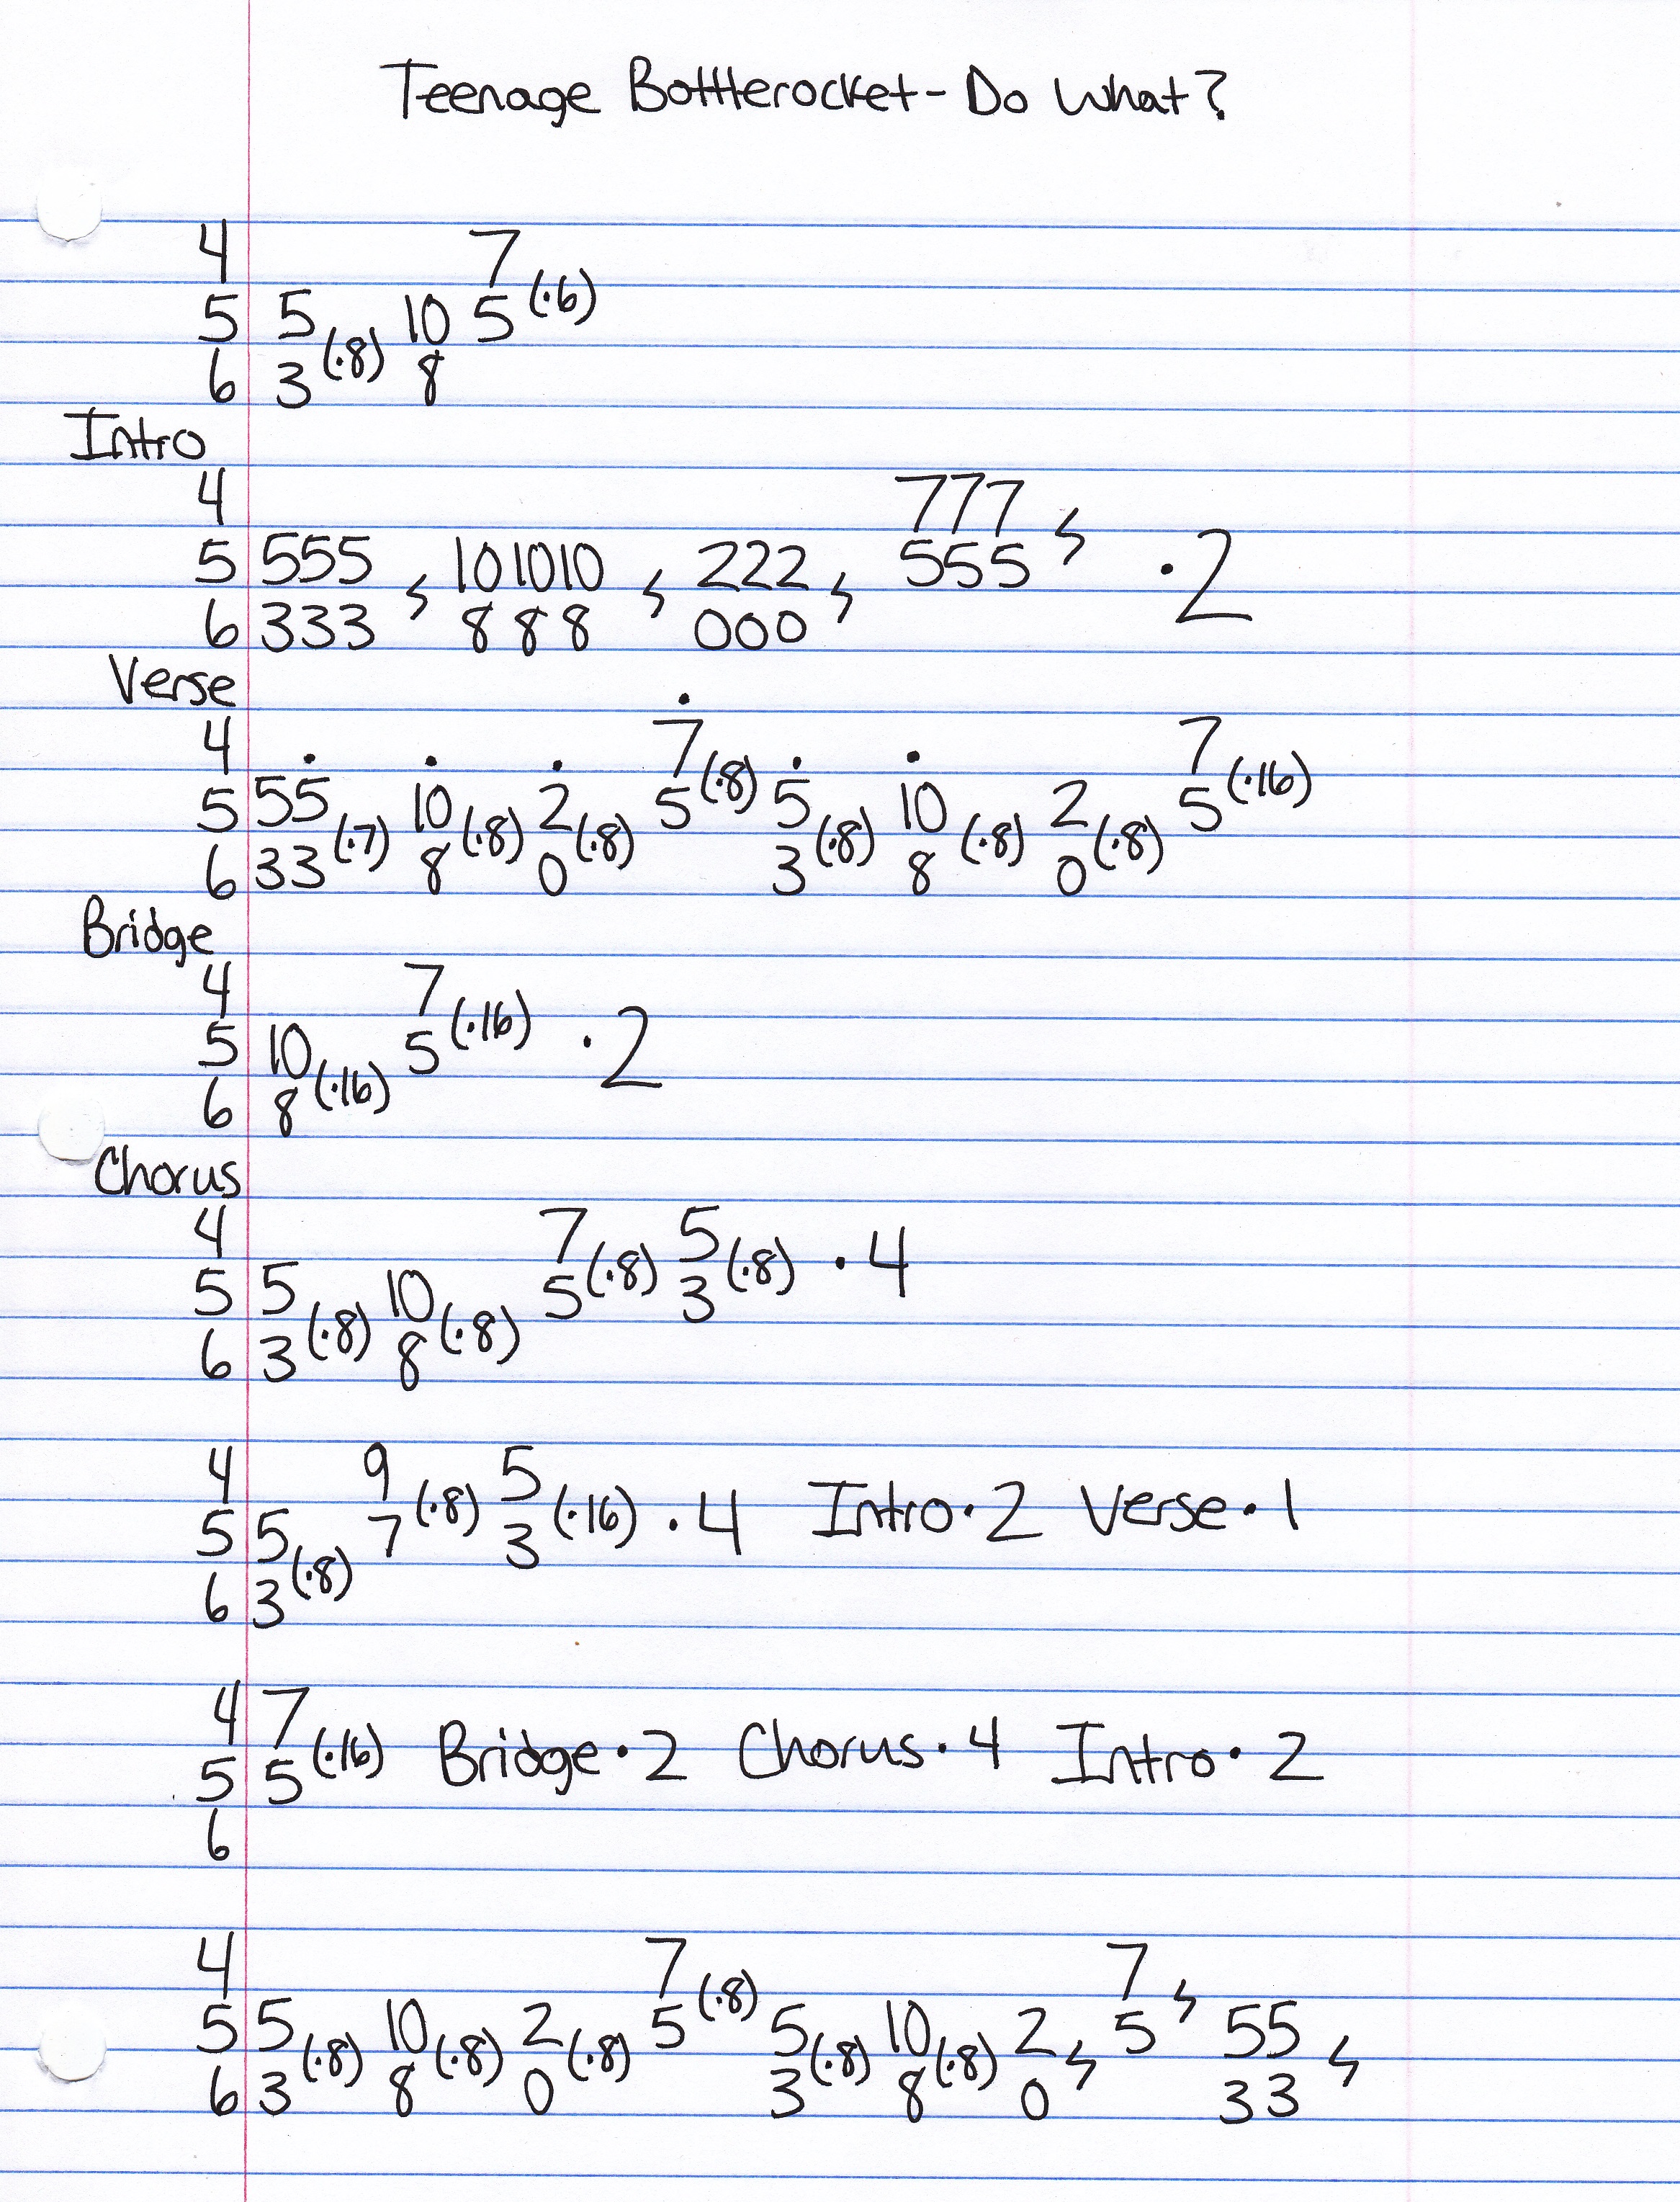 Teenage Bottlerocket - Do What?
4 7
5 5 (·8) 10 5 (·6)
6 3 8
Intro
4 777
5 555 , 101010 , 222 , 555 , ·2
6 333 888 000
Verse
4 7
5 55 (·7) 10 (·8) 2 (·8) 5 (·8) 5 (·8) 10 (·8) 2 (·8) 5 (·16)
6 33 8 0 3 8 0
Bridge
4 7
5 10 (·16) 5 (·16) ·2
6 8
Chorus
4 7 5
5 5 (·8) 10 (·8) 5 (·8) 3 (·8) ·4
6 3 8
4 9 5
5 5 (·8) 7 (·8) 3 (·16) ·4 Intro·2 Verse·1
6 3
4 7
5 5 (·16) Bridge·2 Chorus·4 Intro·2
6
4 7 7
5 5 (·8) 10 (·8) 2 (·8) 5 (·8) 5 (·8) 10 (·8) 2 , 5 , 55 ,
6 3 8 0 3 8 0 33